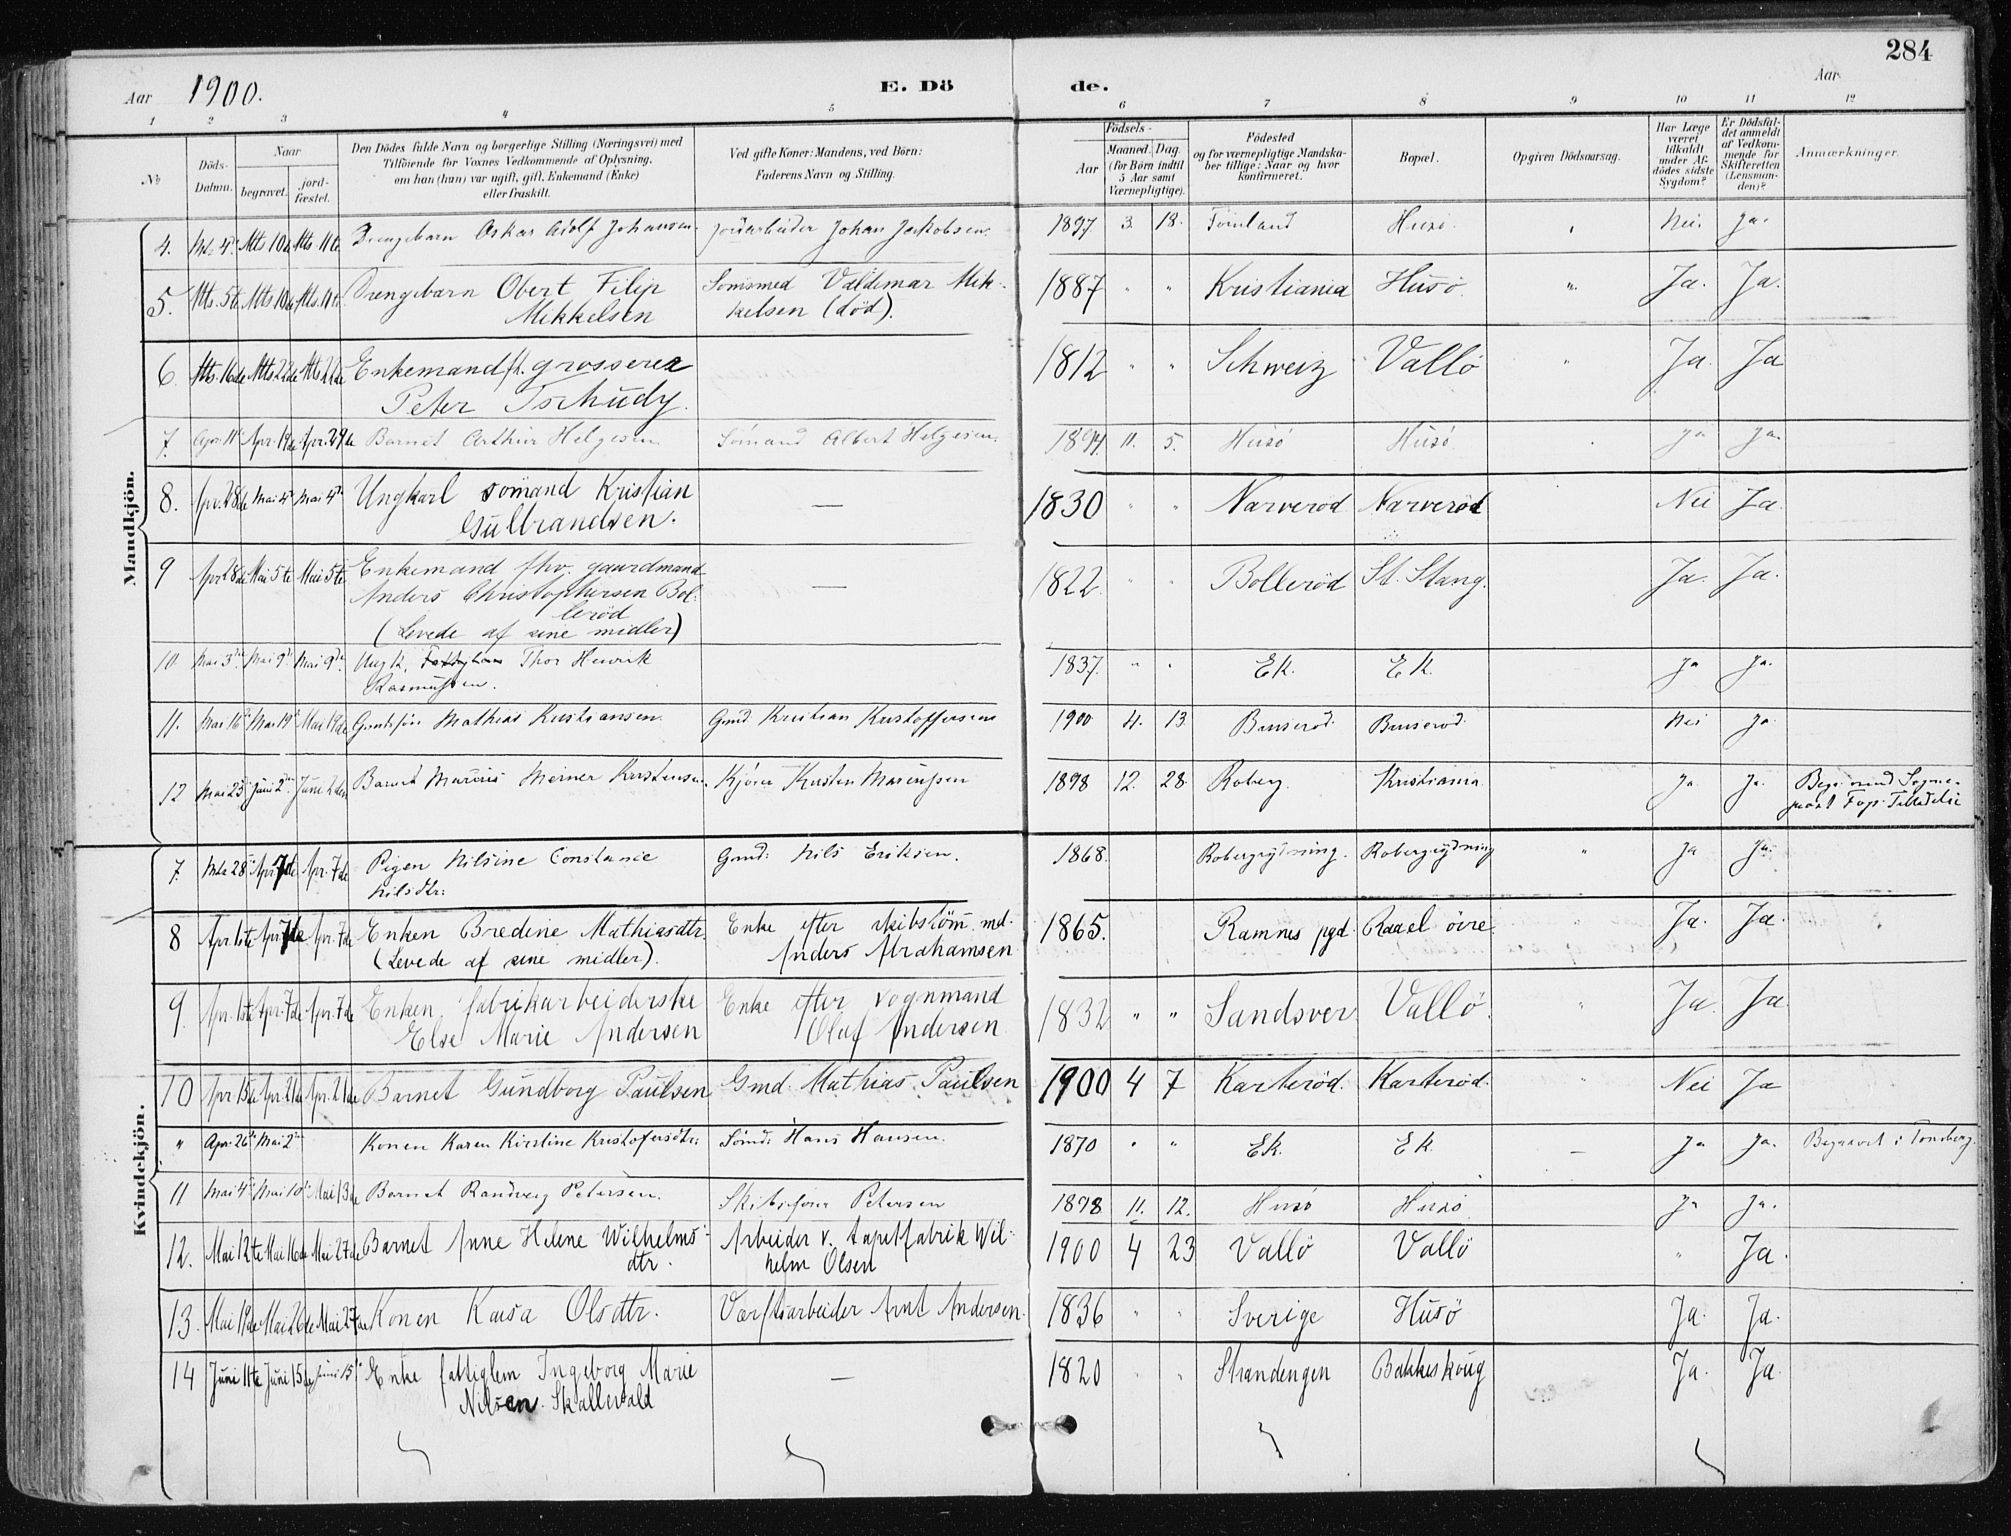 284
Aar 1900. E. Dö de. Aar
1 2 3 4 5 6 7 8 9 10 11 12
№ Döds-Datum. Naar begravet. jord-fæstet. Den Dödes fulde Navn og borgerlige Stilling (Næringsvei) med Tilföiende for Voxnes Vedkommende af Oplysning, om han (hun) var ugift, gift, Enkemand (Enke) eller fraskilt. Ved gifte Koner: Mandens, ved Börn: Faderens Navn og Stilling. Födsels- Aar Maaned. Dag. (for Börn indtil 5 Aar samt Værnepligtige). Födested og for værnepligtige Mandska-ber tillige: Naar og hvor konfirmeret. Bopæl. Opgiven Dödsaarsag. Har Læge været tilkaldt under Af-dödes sidste Sygdom? Er Dödsfal-det anmeldt af Vedkom-mende for Skifteretten (Lensman-den)? Anmærkninger.
Mandkjön.
4. Mts 4de Mts 10de Mts 11te Drengebarn Oskar Adolf Johansen. Jordarbeider Johan Jakobsen. 1897 3. 18. Husö. Nei. Ja.
5. Mts. 5te Mts 10de Mts. 11te Drengebarn Obert Filip Sömsmed Valdemar Mik-
Mikkelsen kelsen (död). 1887 " " Kristiania Husö. " Ja. Ja.
6. Mts. 16de Mts 22de Mts 22de Enkemand fh. grosserer
Peter Tschudy. 1812 " " Schweiz Vallö " Ja. Ja
7. Apr. 11te Apr. 19de Apr. 29de Barnet Arthur Helgesen Sömand Albert Helgesen. 1894 11. 5. Husö Husö. Ja Ja.
8. Apr. 28de Mai 4de Mai 4de Ungkarl sömand Kristian
Gulbrandsen. — 1830 " " Narveröd Narveröd Nei Ja.
9 Apr 28de Mai 5te Mai 5te Enkemand fhv. gaardmand
Anders Christophersen Bol-
leröd —
(Levede af sine midler) 1822. " " Bolleröd St. Stang. Ja. Ja.
10. Mai 3die Mai 9de Mai 9de Ungk. Thor Henrik
Rasmussen. 1837. " " Ek. Ek. Ja Ja.
11. Mai 16de Mai 19de Mai 19de Mathias Kristiansen. Gmd Kristian Kristoffersen 1900 4. 13 Bruseröd. Bruseröd. Nei Ja.
12 Mai 25 Juni 2den Juni 2den Barnet Marius Werner Kristensen. Kjörer Kristen Mariussen 1898 12. 28. Roberg. Kristiania Ja. Ja. Begr. med Sogne-
præst Tilladelse
Kvindekjön.
7. Mts 28 Apr. 7de Apr. 7de Pigen Nilsine Constanse Gmd: Nils Eriksen.
Nilsdtr: 1868. Robergrydning. Robergrydning " Ja Ja.
8 Apr. 1ste Apr. 7de Apr. 7de Enken Bredine Mathiasdtr. Enke efter skibstöm. md.
(Levede af sine midler). Anders Abrahamsen 1865. Ramnes pgd. Raael övre Ja. Ja.
9. Apr. 1ste Apr. 7de Apr. 7de Enken, fabrikarbeiderske Enke efter vognmand
Else Marie Andersen Oluf Andersen 1832 " " Sandsver. Vallö. " Ja. Ja
10 Apr 15de Apr. 21de Apr. 21de Barnet Gundborg Paulsen Gmd. Mathias Paulsen 1900 4 7 Karteröd. Karteröd. " Nei Ja
" Apr. 26te Mai 2den Konen Karen Kirstine Kristofersdtr. Sömd: Hans Hansen. 1870 " " Ek. Ek. — Ja Ja. Begravet i Tönsberg.
11 Mai 4de Mai 10de Mai 13de Barnet Randveig Petersen. Petersen 1898 11. 12. Husö Husö. Ja Ja.
12. Mai 12te Mai 16de Mai 27de Barnet Anne Helene Wilhelms- Arbeider v. tapetfabrik Wil-
dtr. helm Olsen 1900 4 23 Vallö Vallö " Ja.
13. Mai 19de Mai 26de Mai 27de Konen Kaisa Olsdtr. Værftsarbeider Arnt Andersen. 1836 " " Sverige Husö Ja. Ja.
14 Juni 11te Juni 15de Juni 15de Enke fattiglem Ingeborg Marie
Nilsen Skallevald — 1820 " " Strandengen Bakkeskoug Ja. Ja.